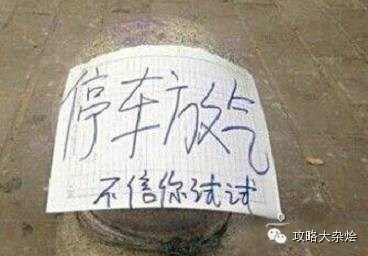 停车放气
不信你试试
攻略大杂烩